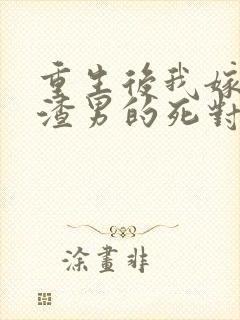 重生後我嫁
渣男的死對
涂畫非